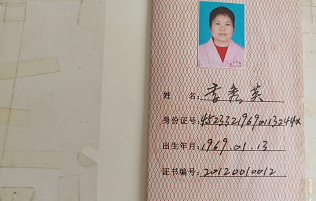 姓 名: 李秀英
身份证号:
出生年月: 1969.01.13
证书编号: 20120010012